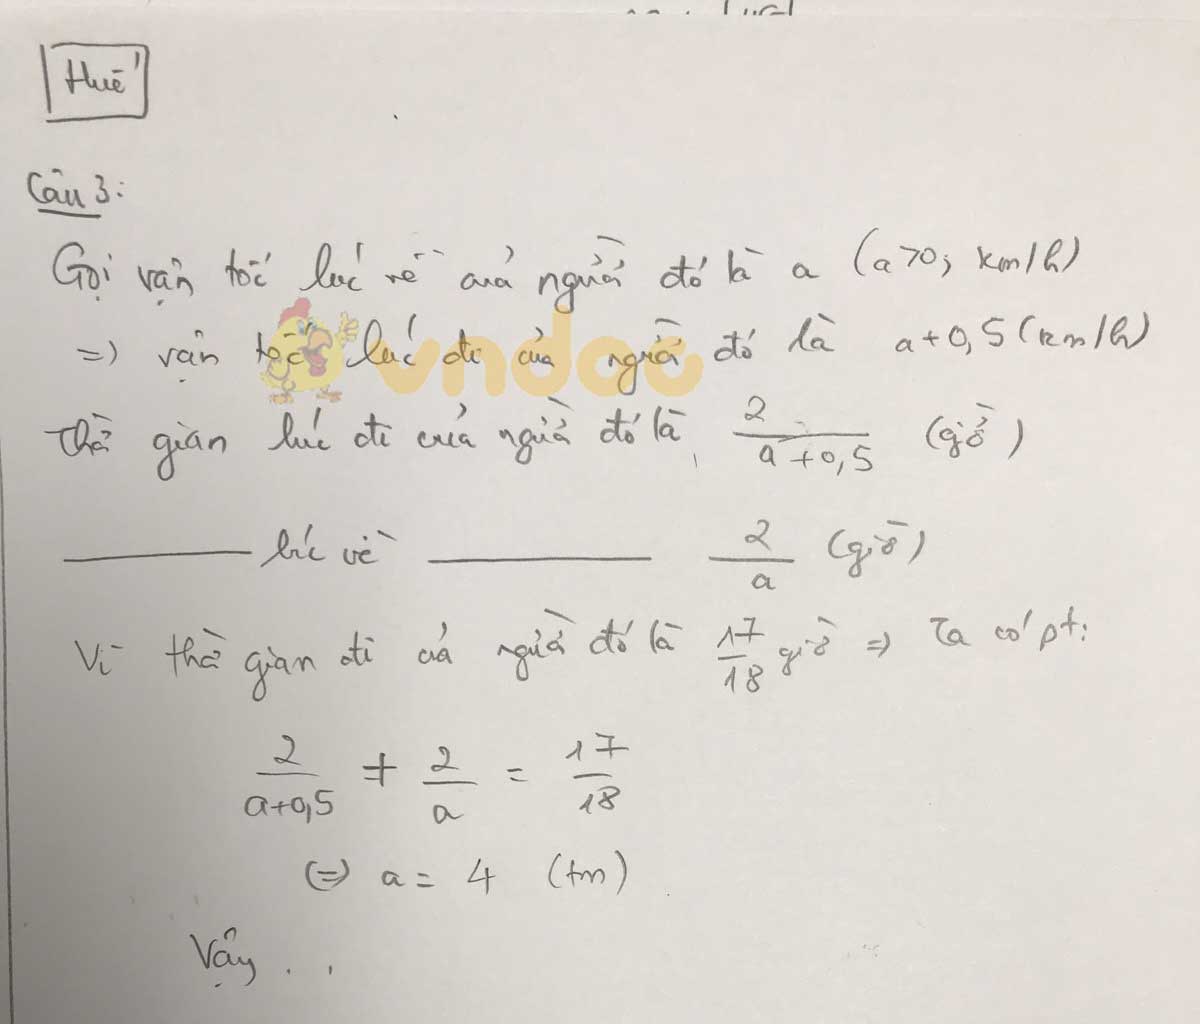 Huế
Câu 3:
Gọi vận tốc lúc về của người đó là a (a>0; km/h)
=> vận tốc lúc đi của người đó là a+0,5 (km/h)
vndoc
Thời gian lúc đi của người đó là 2/(a+0,5) (giờ)
———— lúc về ———— 2/a (giờ)
Vì thời gian đi của người đó là 17/18 giờ => Ta có pt:
2/(a+0,5) + 2/a = 17/18
(=) a = 4 (tm)
Vậy . .